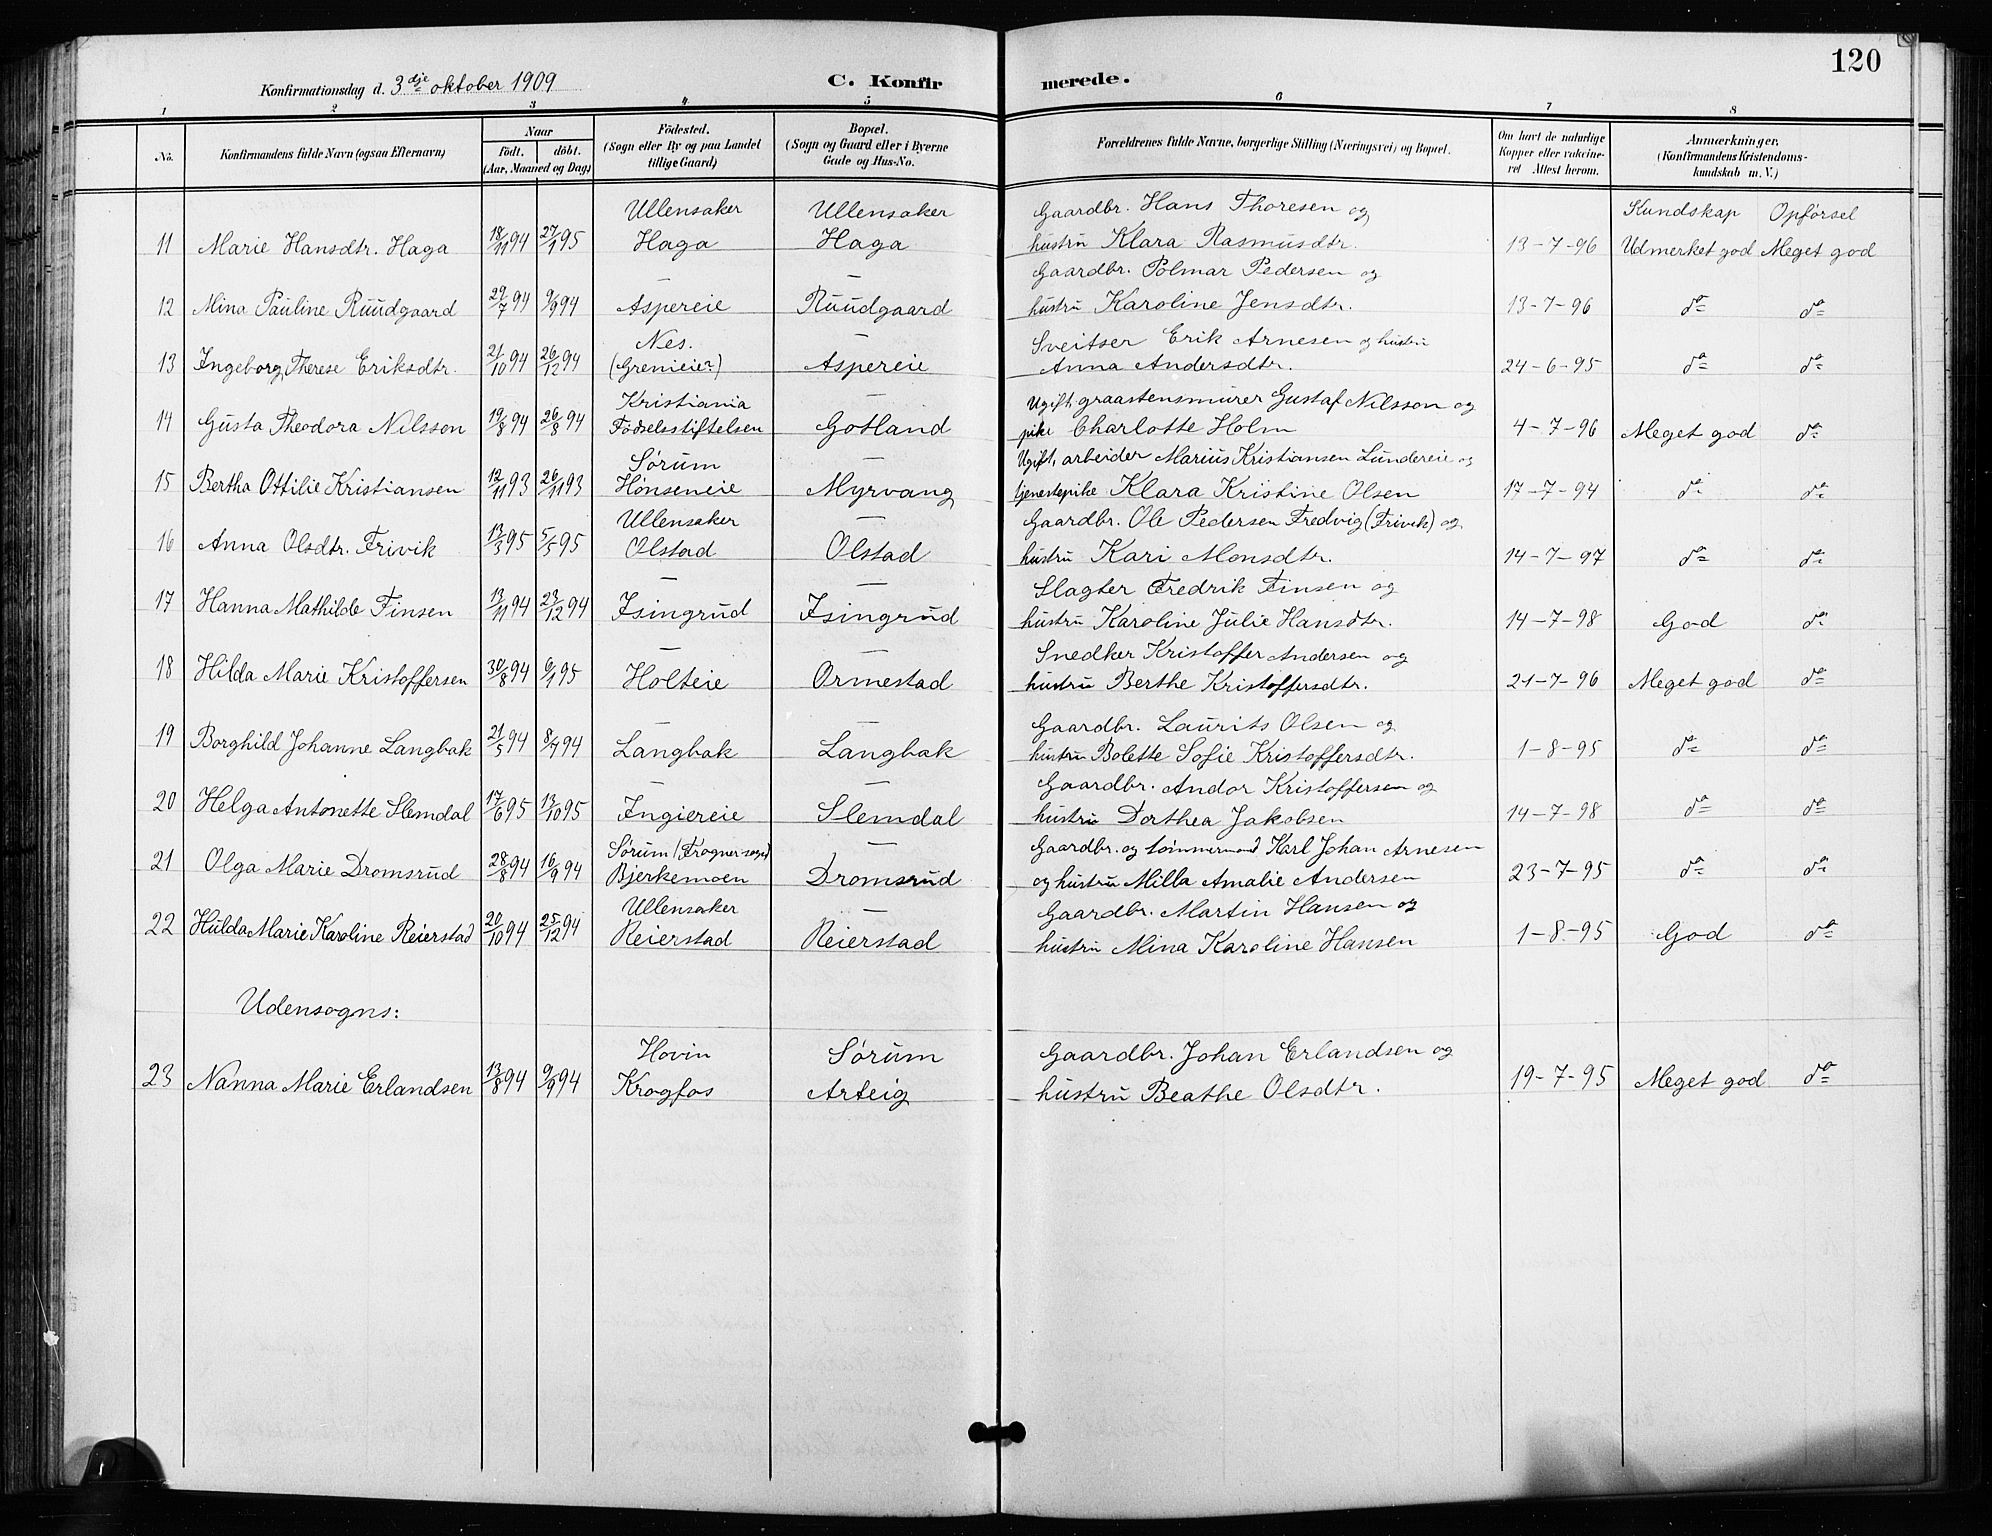 120
Konfirmationsdag d. 3dje oktober 1909 C. Konfirmerede.
1 2 3 4 5 6 7 8
No. Konfirmandens fulde Navn (ogsaa Efternavn) Naar Födt. döbt. (Aar, Maaned og Dag) Födested. (Sogn eller By og paa Landet tillige Gaard) Bopæl. (Sogn og Gaard eller i Byerne Gade og Hus-No. Forældrenes fulde Navne, borgerlige Stilling (Næringsvei) og Bopæl. Om havt de naturlige Kopper eller vakcineret Attest herom. Anmærkninger, (Konfirmandens Kristendomskundskab m. V.)
Ullensaker Ullensaker Gaardbr. Hans Thoresen og Kundskap Opförsel
11 Marie Hansdtr. Haga 18/11 94 27/1 95 Haga Haga hustru Klara Rasmusdtr. 13-7-96 Udmerket god Meget god
— Gaardbr. Polmar Pedersen og
12 Mina Pauline Ruudgaard 29/7 94 9/9 94 Aspereie Ruudgaard hustru Karoline Jensdtr. 13-7-96 do do
Nes. — Sveitser Erik Arnesen og hustru
13 Ingeborg Therese Eriksdtr. 21/10 94 26/12 94 (Grenieie?) Aspereie Anna Andersdtr. 24-6-95 do do
Kristiania — Ugift, graastensmurer Gustaf Nilsson og
14 Gusta Theodora Nilsson 19/8 94 26/8 94 Födselsstiftelsen Gotland pike Charlotte Holm 4-7-96 Meget god do
Sørum — Ugift, arbeider Marius Kristiansen Lundereie og
15 Bertha Ottilie Kristiansen 12/11 93 26/11 93 Hönseneie Myrvang tjenestepike Klara Kristine Olsen 17-7-94 do do
Ullensaker — Gaardbr. Ole Pedersen Fredvig (Frivik) og
16 Anna Olsdtr. Frivik 13/3 95 5/5 95 Olstad Olstad hustru Kari Monsdtr. 14-7-97 do do
— — Slagter Fredrik Finsen og
17 Hanna Mathilde Finsen 13/11 94 23/12 94 Isingrud Isingrud hustru Karoline Julie Hansdtr. 14-7-98 God do
— — Snedker Kristoffer Andersen og
18 Hilda Marie Kristoffersen 30/8 94 6/1 95 Holteie Ormestad hustru Berthe Kristoffersdtr. 21-7-96 Meget god do
— — Gaardbr. Laurits Olsen og
19 Borghild Johanne Langbak 21/5 94 8/7 94 Langbak Langbak hustru Bolette Sofie Kristoffersdtr. 1-8-95 do do
— — Gaardbr. Andor Kristoffersen og
20 Helga Antonette Slemdal 17/6 95 13/10 95 Ingiereie Slemdal hustru Dorthea Jakobsen 14-7-98 do do
Sørum (Frogner sogn) — Gaardbr. og tømmermand Karl Johan Arnesen
21 Olga Marie Dromsrud 28/8 94 16/9 94 Bjerkemoen Dromsrud og hustru Milla Amalie Andersen 23-7-95 do do
Ullensaker — Gaardbr. Martin Hansen og
22 Hulda Marie Karoline Reierstad 20/10 94 25/12 94 Reierstad Reierstad hustru Mina Karoline Hansen 1-8-95 God do
Udensogns:
Hovin Sørum Gaardbr. Johan Erlandsen og
23 Nanna Marie Erlandsen 13/8 94 9/9 94 Krogfos Arteig hustru Beathe Olsdtr. 19-7-95 Meget god do